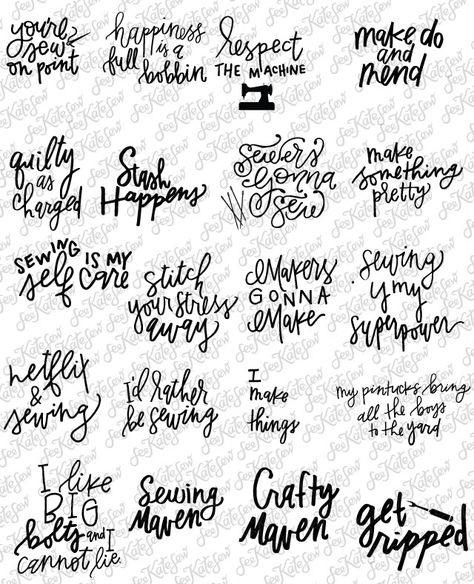 you're
sew
on point
happiness
is a
full
bobbin
respect
THE MACHINE
make do
and
mend
quilty
as
charged
Stash
Happens
Sewers
gonna
Sew
make
something
pretty
SEWING IS MY
self care
stitch
your stress
away
Makers
GONNA
Make
sewing
y my
superpower
netflix
&
sewing
I'd rather
be sewing
I
make
things
my pintucks bring
all the boys
to the yard
I like
BIG
bolts and I
cannot lie.
Sewing
Maven
Crafty
Maven
get
ripped
See Kate Sew